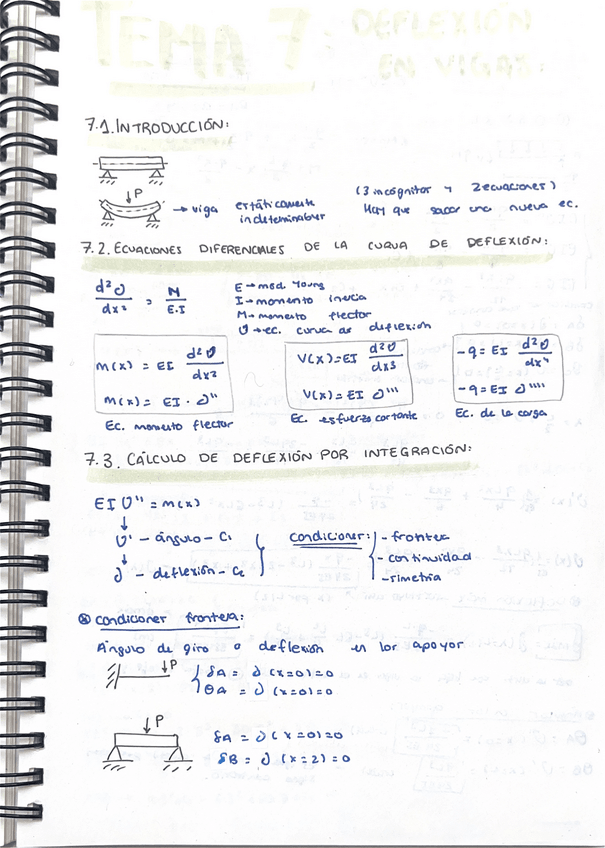 TEMA 7: DEFLEXIÓN
EN VIGAS:
7.1. INTRODUCCIÓN:
P
→ viga estáticamente indeterminada
(3 incógnitas y 2 ecuaciones)
Hay que sacar una nueva ec.
7.2. ECUACIONES DIFERENCIALES DE LA CURVA DE DEFLEXIÓN:
d²υ/dx² = M/E.I
E → mod. Young
I → momento inercia
M → momento flector
υ → ec. curva de deflexión
M(x) = EI d²υ/dx²
M(x) = EI · υ''
Ec. momento flector
V(x) = EI d²υ/dx3
V(x) = EI υ'''
Ec. esfuerzo cortante
-q = EI d²υ/dx⁴
-q = EI υ''''
Ec. de la carga
7.3. CÁLCULO DE DEFLEXIÓN POR INTEGRACIÓN:
EI υ'' = M(x)
↓
υ' - ángulo - C₁
↓
υ - deflexión - C₂
condiciones:
- frontera
- continuidad
- simetría
⊗ condiciones frontera:
Ángulo de giro o deflexión en los apoyos
P
δA = υ (x=0)=0
θA = υ (x=0)=0
P
δA = υ (x=0)=0
δB = υ (x=2)=0